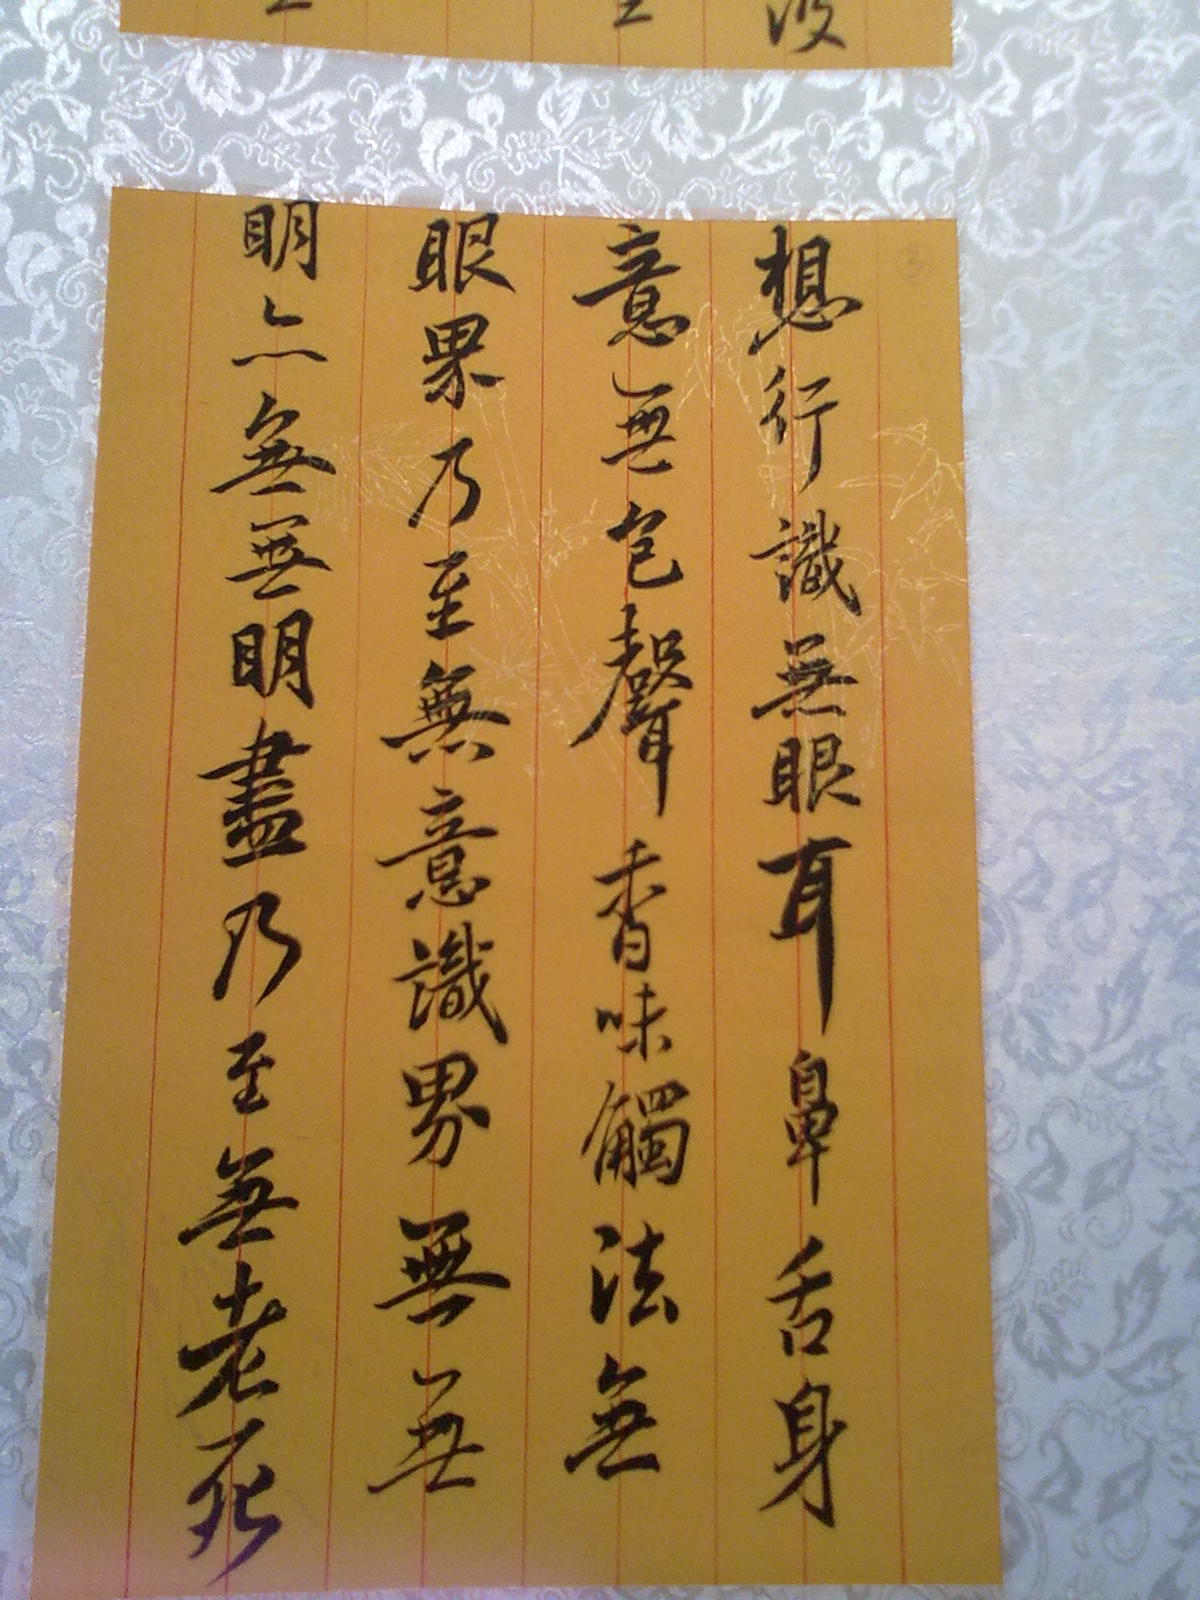 想行識無眼耳鼻舌身
意無色聲香味觸法無
眼界乃至無意識界無無
明亦無無明盡乃至無老死